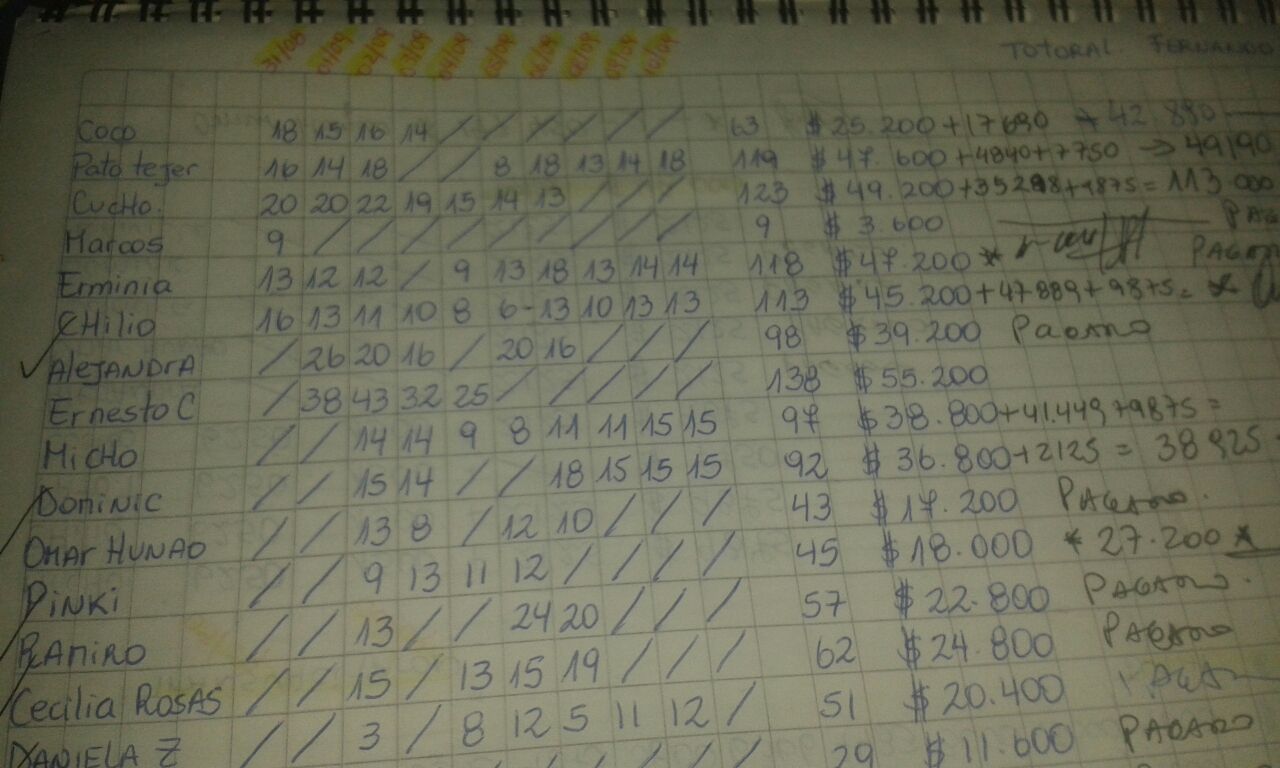 TOTORAL. FERNANDO
31/08 01/09 02/09 03/09 04/09 05/09 06/09 08/09 09/09 10/09
Coco 18 15 16 14 / / / / / / 63 $ 25.200 + 17690 → 42.890
Pato tejer 16 14 18 / / 8 18 13 14 18 119 $ 47.600 + 4840 + 7750 → 49190
CucHo. 20 20 22 19 15 14 13 / / / 123 $ 49.200 + 35298 + 9875 = 113.000
Marcos 9 / / / / / / / / / 9 $ 3.600
Erminia 13 12 12 / 9 13 18 13 14 14 118 $ 47.200 *
CHilio 16 13 11 10 8 6 - 13 10 13 13 113 $ 45.200 + 47889 + 9875 = *
AlejANDrA / 26 20 16 / 20 16 / / / 98 $ 39.200 PAGADO
Ernesto C / 38 43 32 25 / / / / / 138 $ 55.200
MicHo / / 14 14 9 8 11 11 15 15 97 $ 38.800 + 41.449 + 9875 =
Dominic / / 15 14 / / 18 15 15 15 92 $ 36.800 + 2125 = 38925
OMAr HUNAO / / 13 8 / 12 10 / / / 43 $ 17.200 PAGADO.
PiNKi / / 9 13 11 12 / / / / 45 $ 18.000 * 27.200 *
RAMIRO / / 13 / / 24 20 / / / 57 $ 22.800 PAGADO.
Cecilia ROSAS / / 15 / 13 15 19 / / / 62 $ 24.800 PAGADO
DANIELA Z / / 3 / 8 12 5 11 12 / 51 $ 20.400
29 $ 11.600 PAGADO